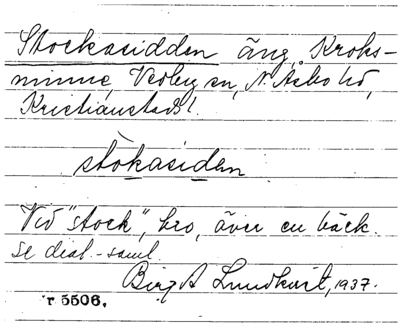 Stockasidden äng, Kroks-
minne, Vedby sn, N. Åsbo hd,
Kristianstads l.
stòkasiden
Vid "stock", bro, över en bäck.
Se dial-saml.
Birgit Lundkvist, 1937.
r 5506.